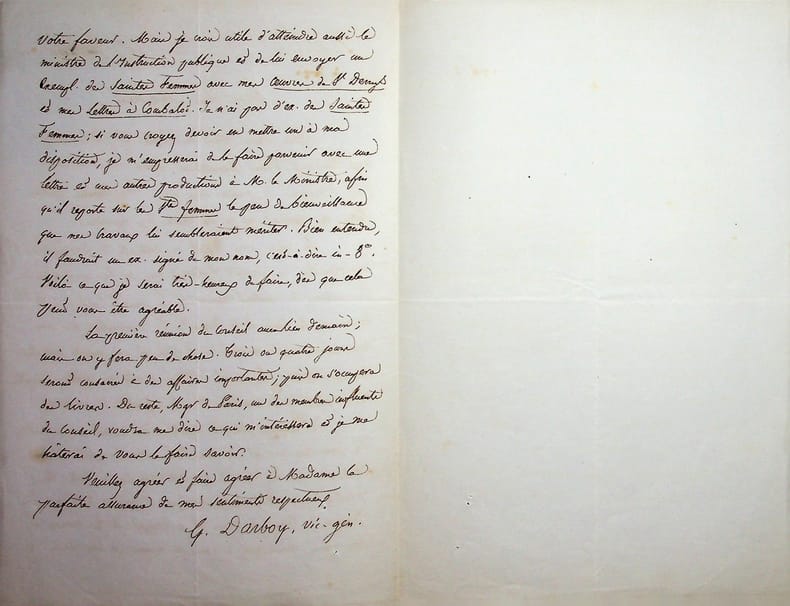 votre faveur. Mais je crois utile d'atteindre aussi le
ministre de l'Instruction publique et de lui envoyer un
Exempl. des Saintes Femmes avec mes Œuvres de St Denys
et mes Lettres à Combalot. Je n'ai pas d'ex. des Saintes
Femmes; si vous croyez devoir en mettre un à ma
disposition, je m'empresserai de le faire parvenir avec une
lettre et mes autres productions à M. le Ministre, afin
qu'il reporte sur les Stes femmes le peu de bienveillance
que mes travaux lui sembleraient mériter. Bien entendu,
il faudrait un ex. signé de mon nom, c'est-à-dire in-8°.
Voilà ce que je serai très-heureux de faire, dès que cela
peut vous être agréable.
La première réunion du Conseil aura lieu demain;
mais on y fera peu de chose. Trois ou quatre jours
seront consacrés à des affaires importantes; puis on s'occupera
des livres. Du reste, Mgr de Paris, un des membres influents
du Conseil, voudra me dire ce qui m'intéressera et je me
hâterai de vous le faire savoir.
Veuillez agréer et faire agréer à Madame la
parfaite assurance de mes sentiments respectueux,
G. Darboy, vic-gén.